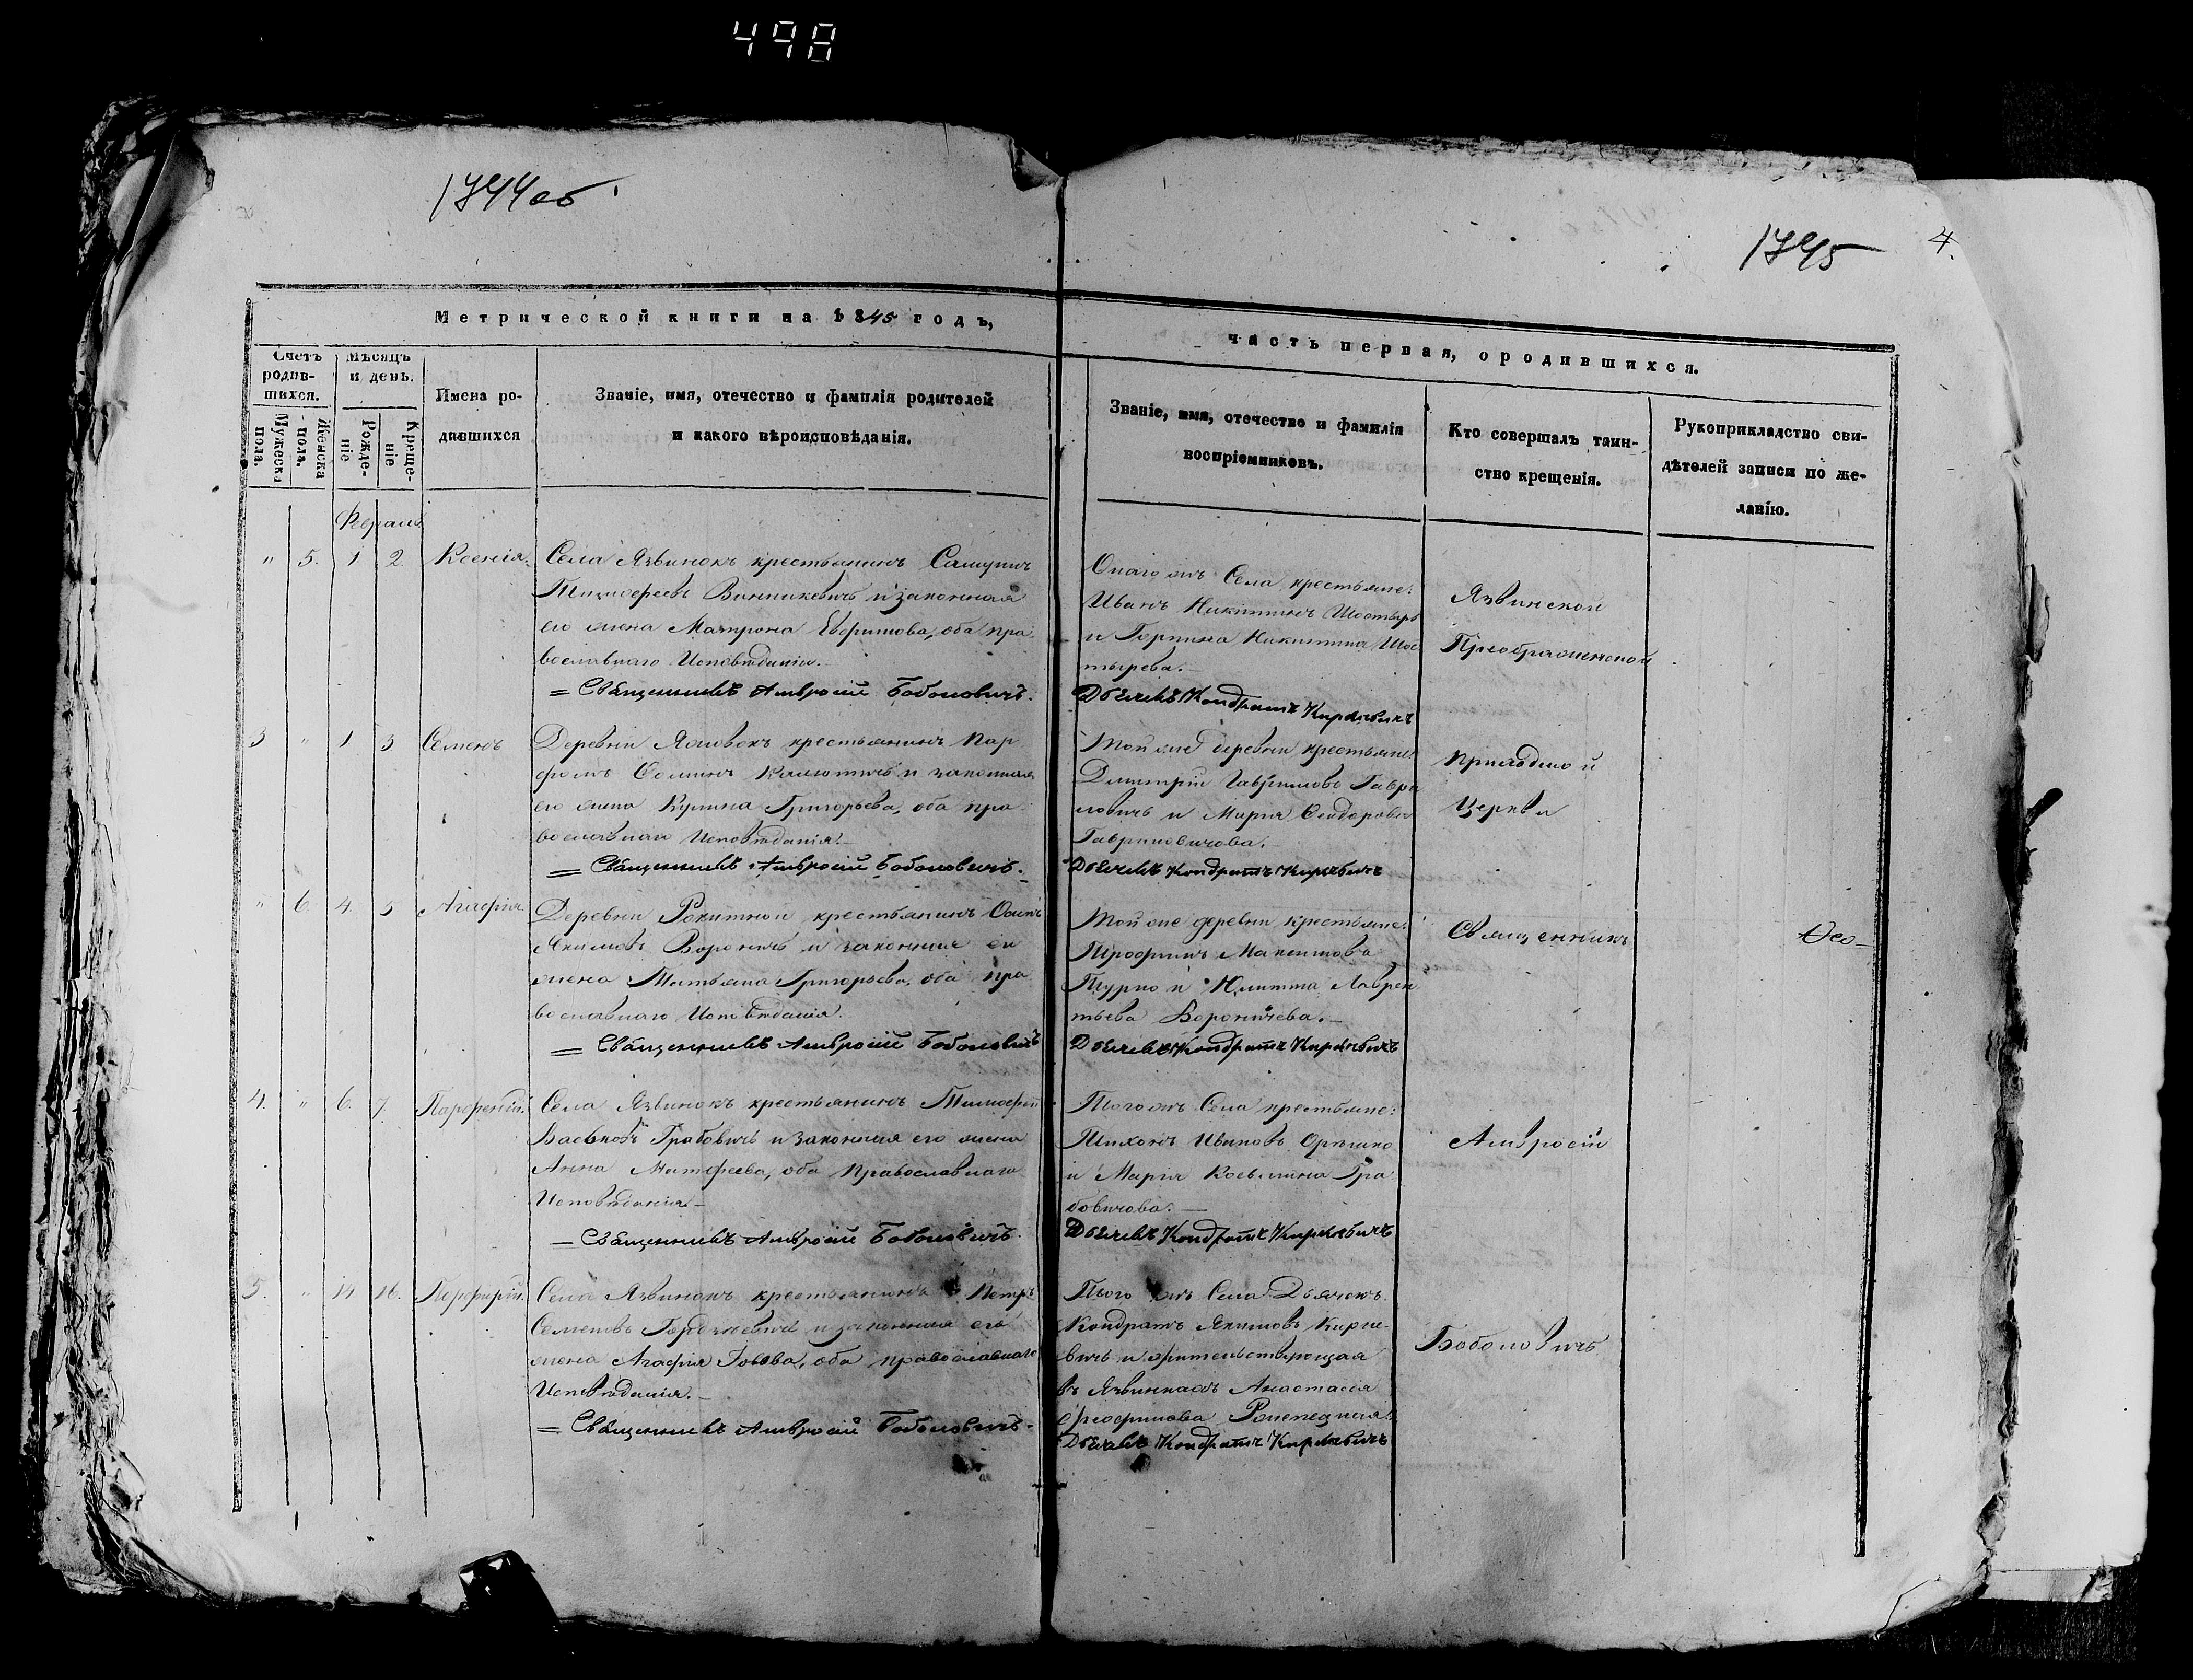 498
1744об
1745
4.
Метрической книги на 1845 годъ,
часть первая, о родившихся.
Счетъ родив-
шихся.
Мужеска пола.
Женска пола.
Мѣсяцъ и день.
Рожде-
ніе
Креще-
ніе
Имена ро-
дившихся
Званіе, имя, отечество и фамилія родителей
и какого вѣроисповѣданія.
Званіе, имя, отечество и фамилія
воспріемниковъ.
Кто совершалъ таин-
ство крещенія.
Рукоприкладство сви-
дѣтелей записи по же-
ланію.
Февраль
" 5. 1 2. Ксенія.
Села Язвинокъ крестьянинъ
Тимофеевъ Винникевичъ и законная
его жена Матрона Евфимова, оба пра
вославнаго Исповѣданія.
= Священникъ Амвросій Боболовичъ.
Онагожъ Села крестьяне:
Иванъ Никитинъ Шостырь
и Горпина Никитина Шос
тырева.
Дьячекъ Кондратъ
3 " 1 3 Семенъ
Деревни крестьянинъ Пар
фенъ и законная
его жена Григорьева, оба пра
вославнаго Исповѣданія.
= Священникъ Амвросій Боболовичъ.
Тойже деревни крестьяне:
Димитрій Гавриловъ Гаври
ловичъ и Марія Феодорова
Гавриловичова.
Дьячекъ Кондратъ
" 6 4. 5 Агафія
Деревни Рокитной крестьянинъ Осипъ
Якимовъ Вороничъ и законная его
жена Татьяна Григорьева, оба пра
вославнаго Исповѣданія.
= Священникъ Амвросій Боболовичъ
Тойже деревни крестьяне:
Трофимъ Максимовъ
и Лаврен
тьева Вороничева.
Дьячекъ Кондратъ
4. " 6. 7. Парфеній.
Села Язвинокъ крестьянинъ Тимофей
Грабовичъ и законная его жена
Анна Матфеева, оба Православнаго
Исповѣданія
— Священникъ Амвросій Боболовичъ.
Тогожъ Села крестьяне:
Тихонъ Ивановъ Орѣшко
и Марія Косьмина Гра
бовичова.
Дьячекъ Кондратъ
5. " 14 16. Порфирій.
Села Язвинокъ крестьянинъ Петръ
Семеновъ и законная его
жена Агафія оба православнаго
Исповѣданія.
= Священникъ Амвросій Боболовичъ.
Тогожъ Села Дьячекъ
Кондратъ Якимовъ
и жительствующая
въ Язвинкахъ Анастасія
Дьячекъ Кондратъ
Язвинской
Преображенской
Приходской
Церкви
Священникъ
Амвросій
Боболовичъ
Ѳео-